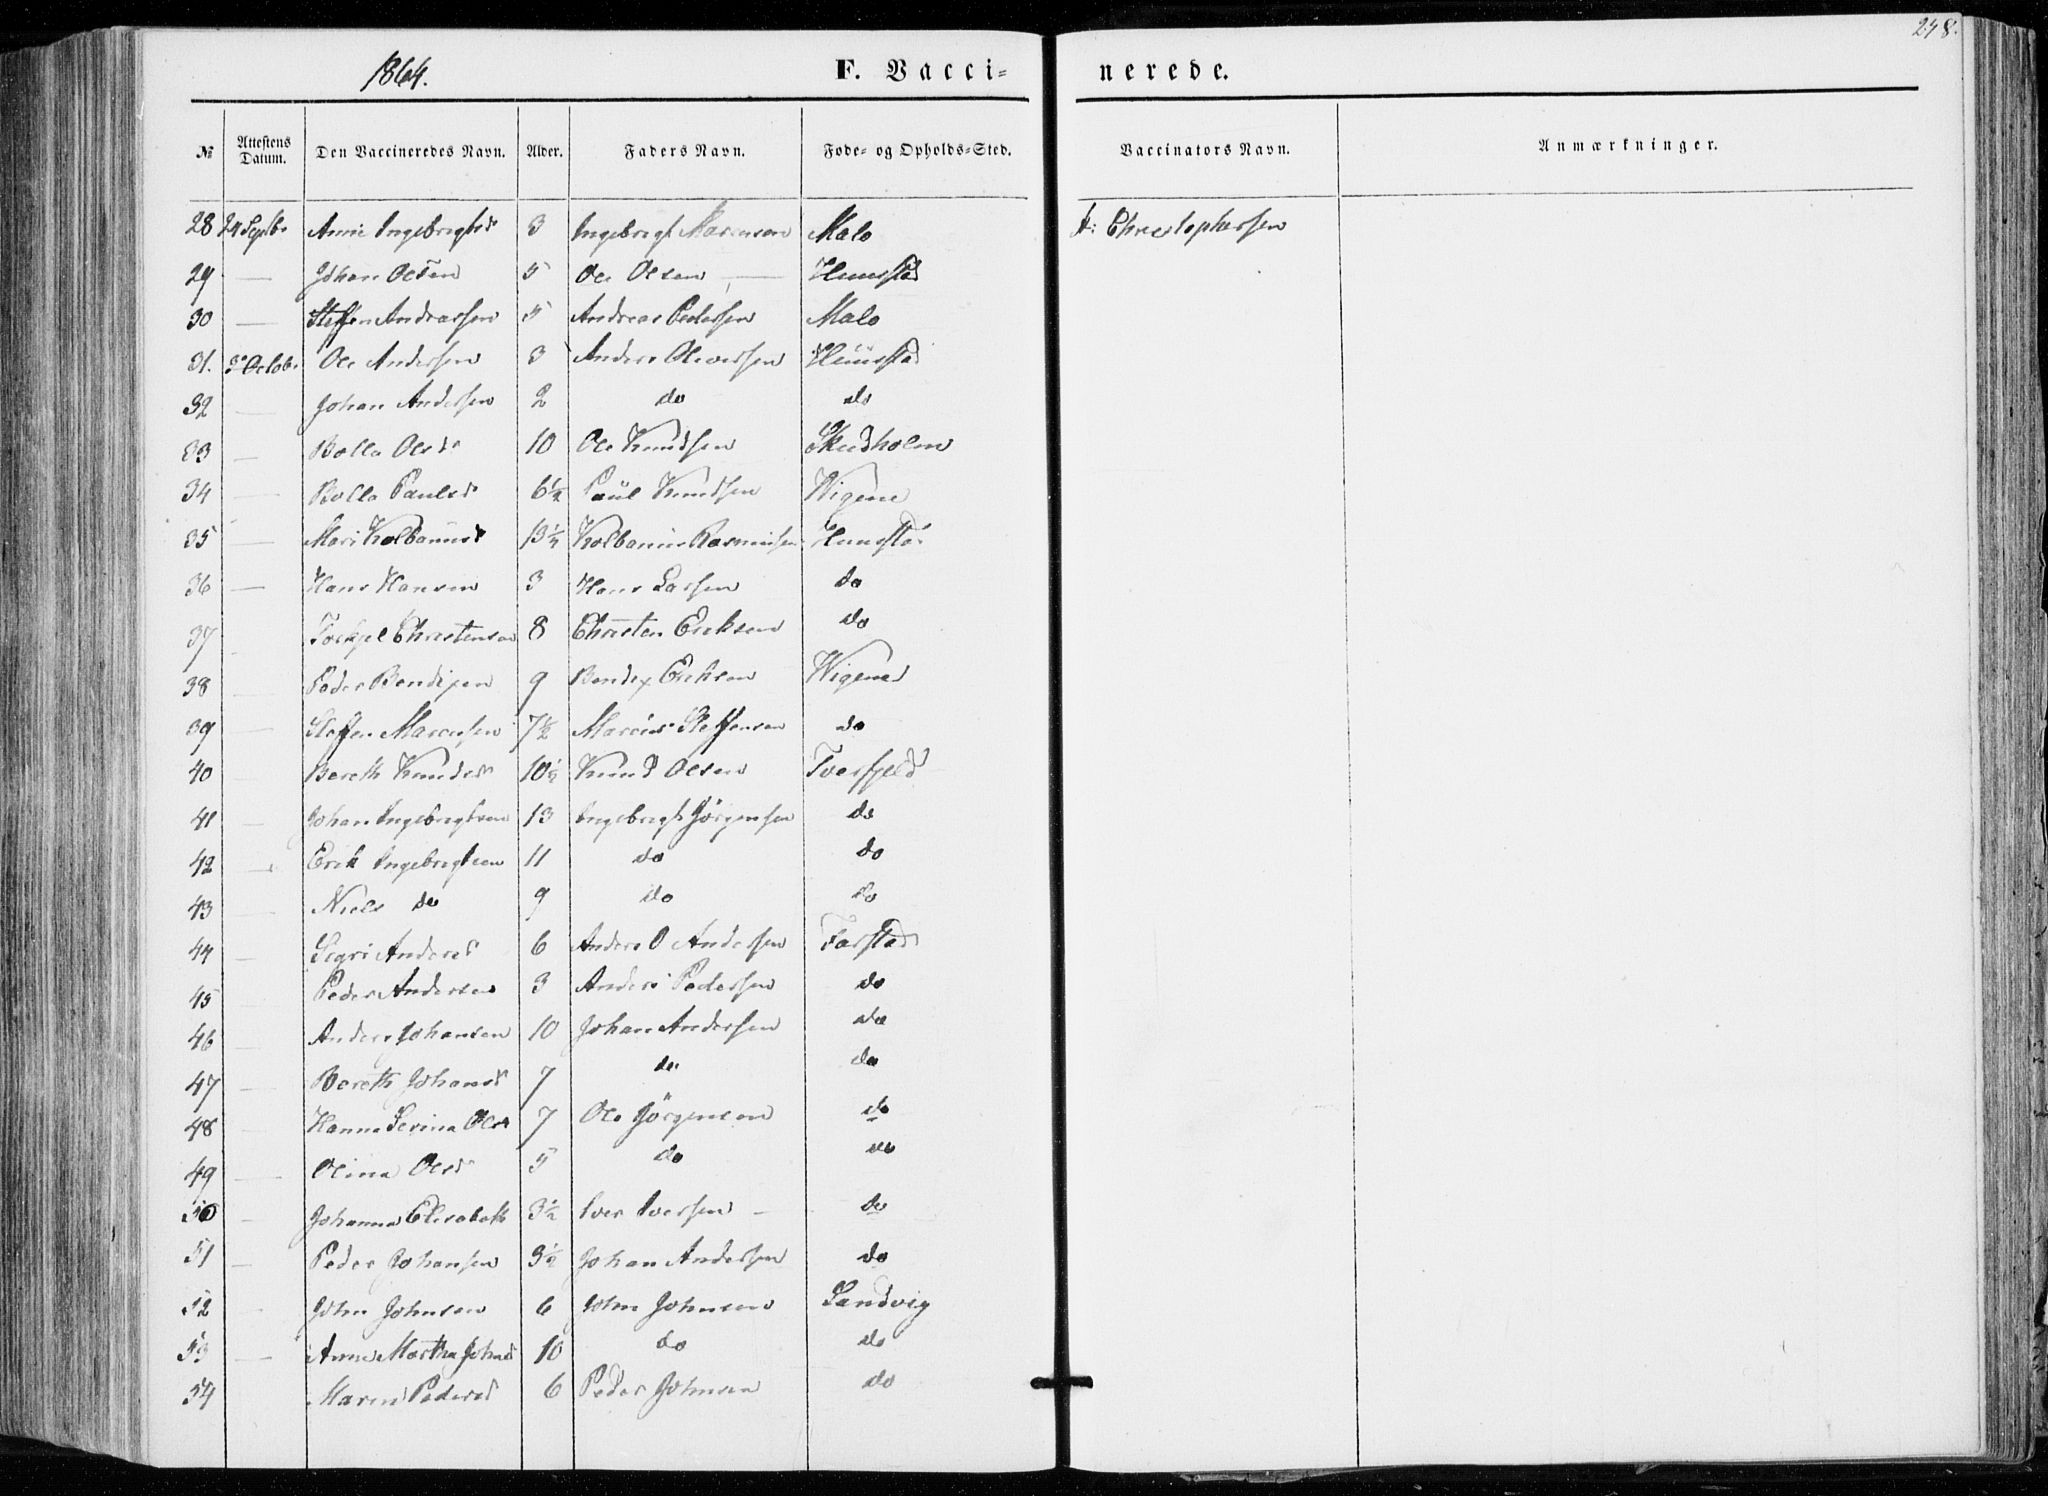 248.
1864.
F. Vacci=nerede.
№ Attestens Datum. Den Vaccineredes Navn. Alder. Faders Navn. Føde- og Opholds-Sted. Vaccinators Navn. Anmærkninger.
28 24 Septbr Anne Ingebrigtsd 3 Ingebrigt Marcussen Malo Christophersen
29 — Johan Olsen 5 Ole Olsen — Hunstad
30 — Steffen Andreassen 5 Andreas Pedersen Malo
31. Octobr Ole Andersen 3 Anders Oliversen Hunstad
32 — Johan Andersen 2 do do
33 — Olsd 10 Ole Knudsen Skudholm
34 — Paulsd 6½ Paul Knudsen Wigene
35 — Mari Kolbanusd 13¼ Kolbanus Rasmussen Hunstad
36 — Hans Hansen 3 Hans Larsen do
37 Torkjel Christensen 8 Christen Eriksen do
38 — Peder Bendixen 9 Bendix Eriksen Wigene
39 — Steffen Marcussen 7½ Marcus Steffensen do
40 — Bereth Knudsd 10½ Knud Olsen Tverfjeld
41 — Johan Ingebrigtsen 13 Ingebrigt Jörgensen do
42 — Erik Ingebrigtsen 11 do do
43 — Niels do 9 do do
44 — Sigri Andersd 6 Anders O Andersen Farstad
45 — Peder Andersen 3 Anders Pedersen do
46 — Anders Johansen 10 Johan Andersen do
47 — Bereth Johansd 7 do do
48 — Hanna Serina Olsd 7 Ole Jörgensen do
49 — Olina Olsd 5 do do
50 — Johanna Elisabeth 3½ Iver Iversen — do
51 — Peder Johansen 3½ Johan Andersen do
52 — John Johnsen 6 John Johnsen Sandvig
53 — Anne Martha Johnsd 10 do do
54 Maren Pedersd 6 Peder Johnsen do